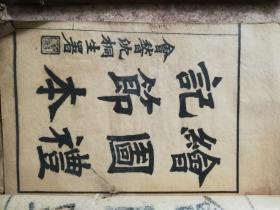 繪圖禮
記節本
會稽沈桐生署